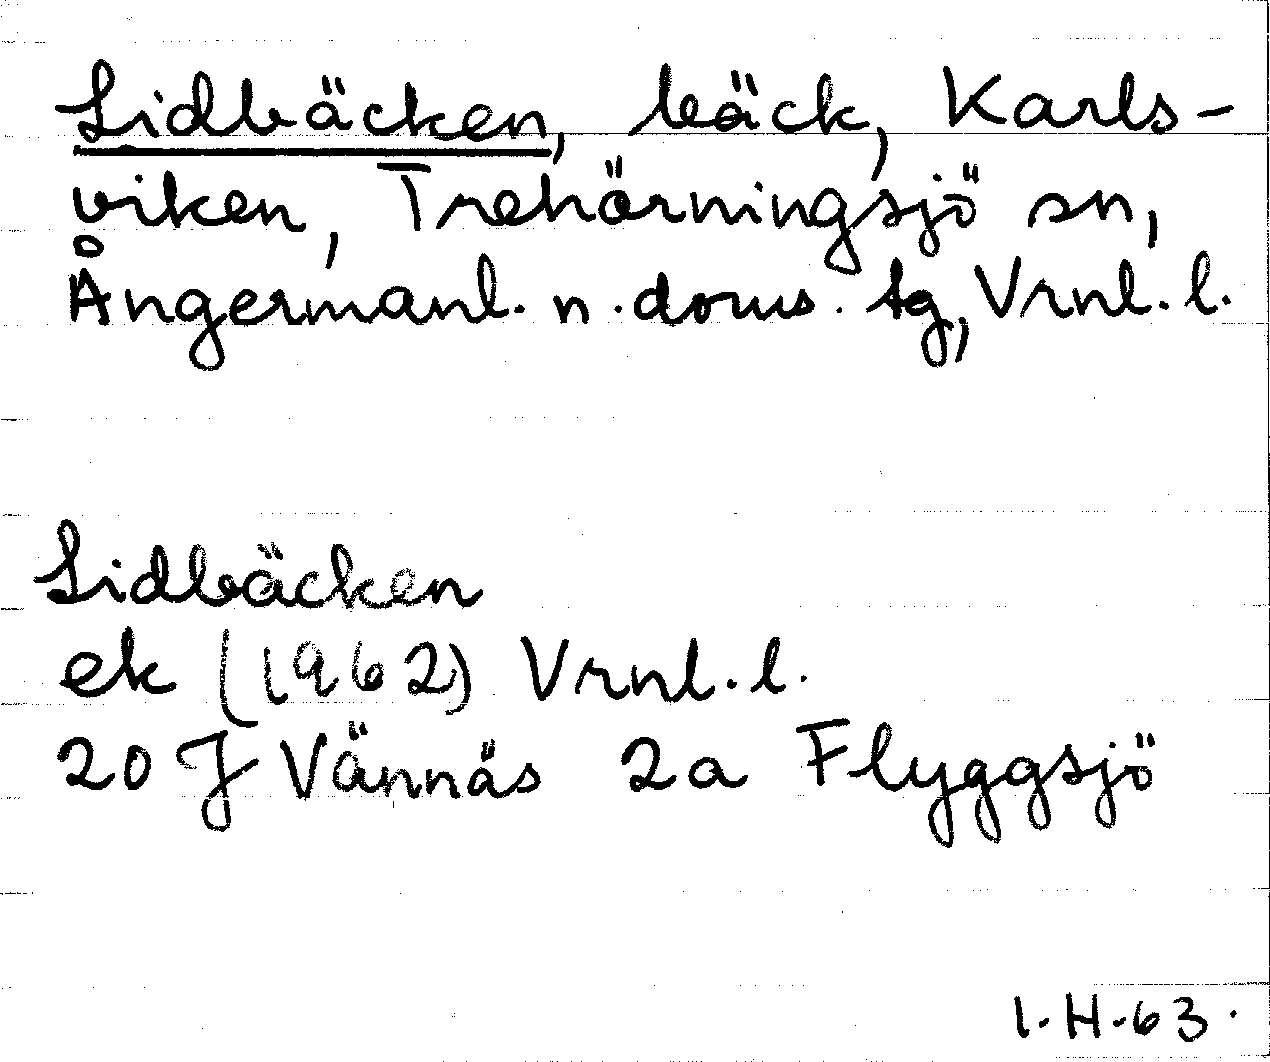 Lidbäcken, bäck, Karls-
viken, Trehörningsjö sn,
Ångermanl. n. doms. tg, Vrnl. l.
Lidbäcken
ek (1962) Vrnl. l.
20 J Vännäs 2a Flyggsjö
I.H.63.